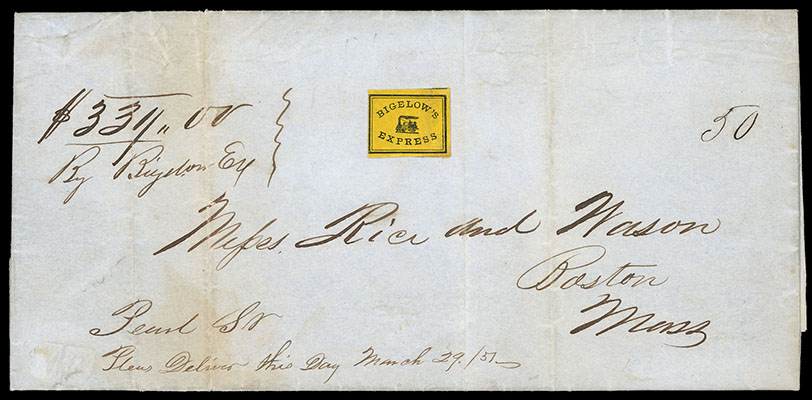 $334,,00
By Bigelow Ex
BIGELOW'S
EXPRESS
50
Messrs. Rice and Wason
Boston
Mass
Pearl St
Pleas Deliver this Day March 29./51